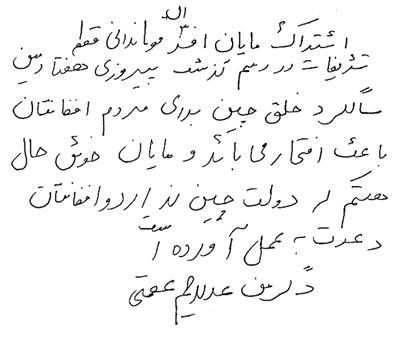 اشتراک مایان افسر قوماندانی قطعه
تشریفات در رسم گذشت پیروزی هفتادمین
سالگرد خلق چین برای مردم افغانستان
باعث افتخار می باشد و مایان خوش حال
هستم که دولت چین از اردو افغانستان
دعوت به عمل آورده است